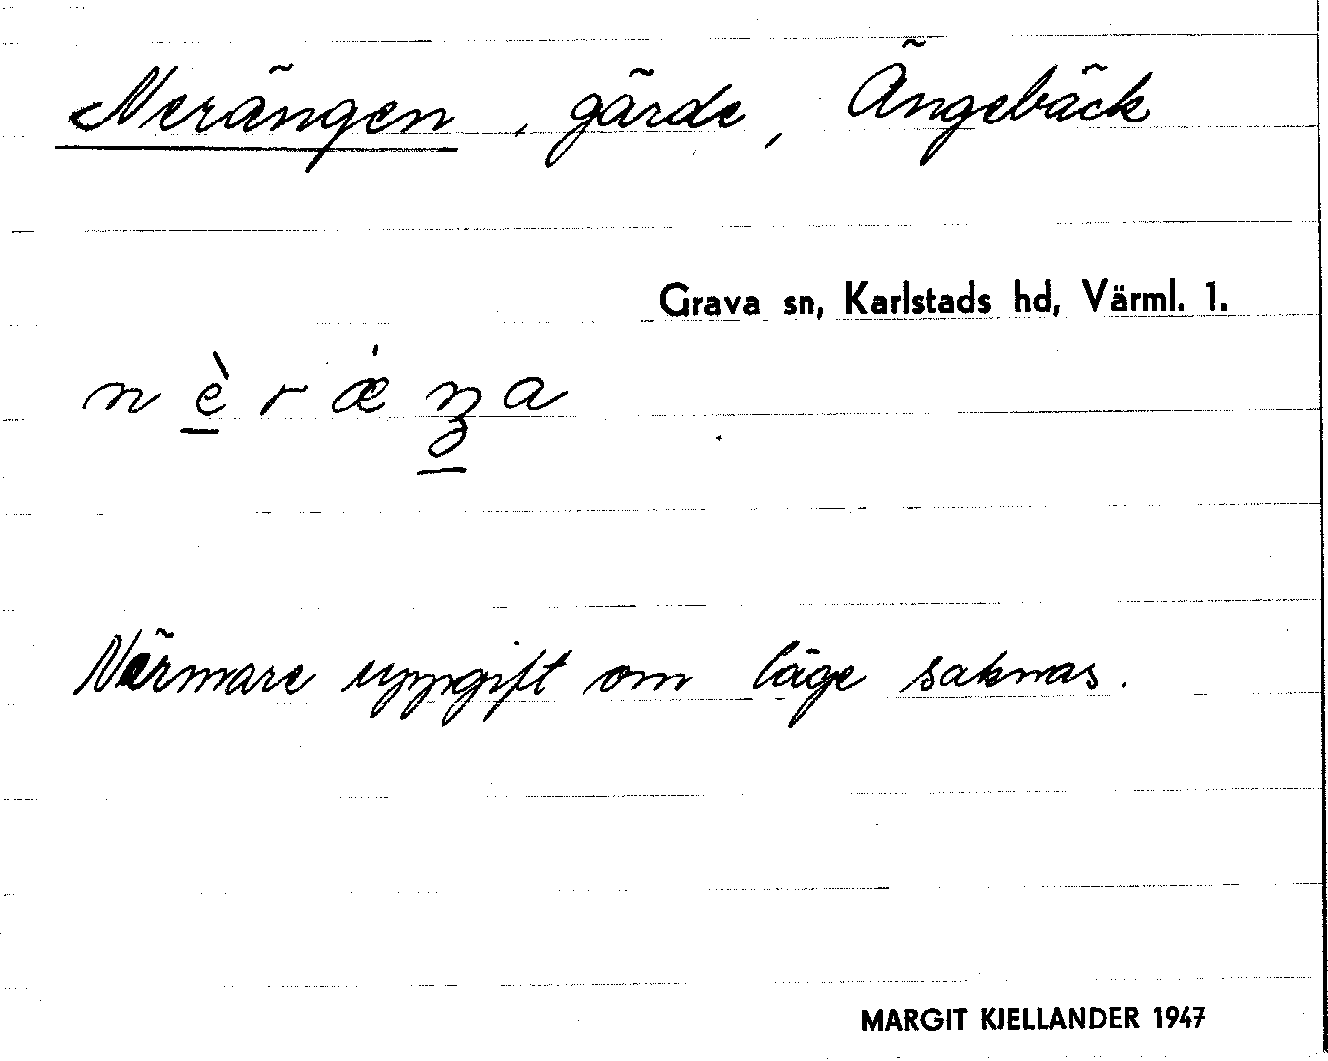 Nerängen, gärde, Ängebäck
Grava sn, Karlstads hd, Värml. 1.
Närmare uppgift om läge saknas.
MARGIT KJELLANDER 1947